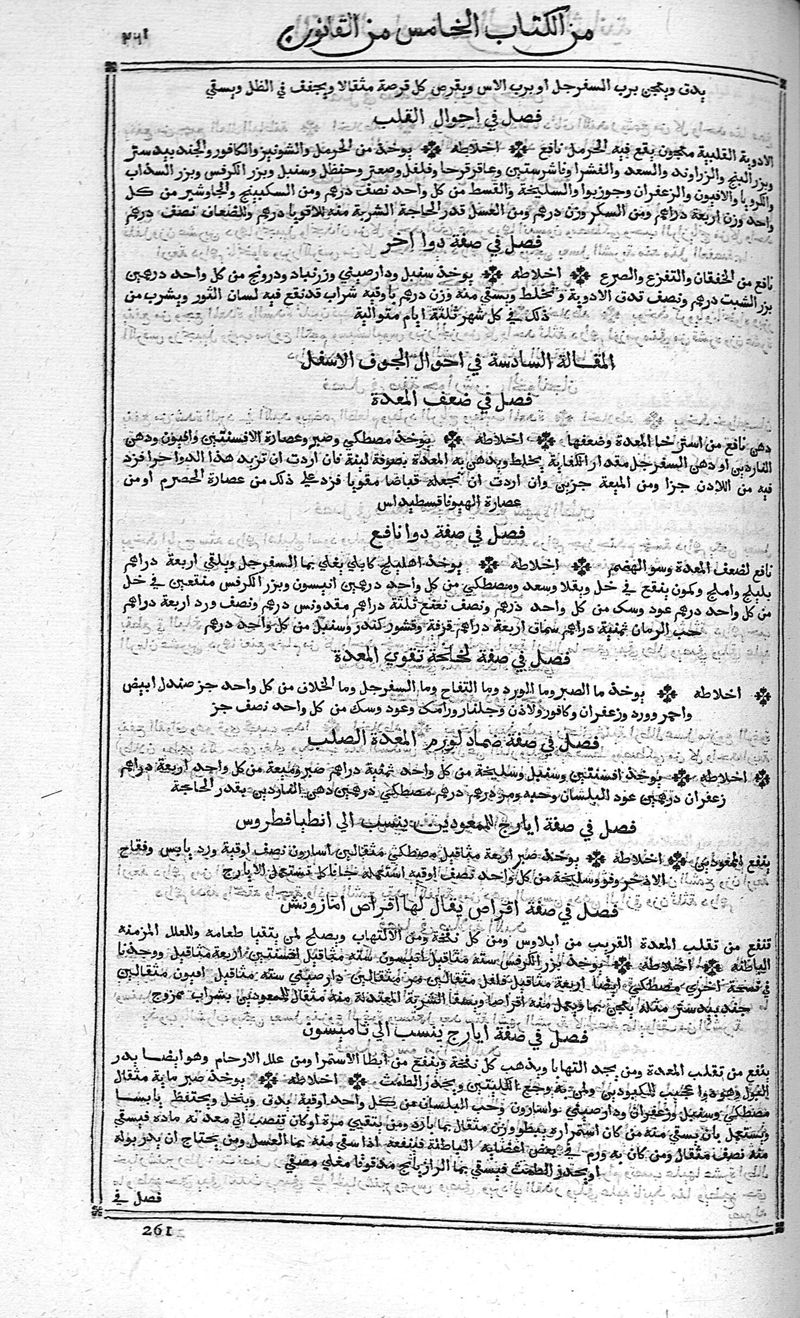 ٢٦١
من الكتاب الخامس من القانون
يدق ويعجن برب السفرجل او برب الاس ويقرص كل قرصة مثقالا ويجفف في الظل ويسقي
فصل في احوال القلب
الادوية القلبية معجون يقع فيه الحرمل نافع اخلاطه يوخذ من الحرمل والشونيز والكافور والجندبيدستر
وبزر البنج والزراوند والسعد والفشرا وفاشرستين وعاقرقرحا وفلفل وصعتر وحنظل وسنبل وبزر الكرفس وبزر السداب
والكرويا والافيون والزعفران وجوزبوا والسليخة والقسط من كل واحد نصف درهم ومن السكبينج والجاوشير من كل
واحد وزن اربعة دراهم ومن السكر وزن درهم ومن العسل قدر الحاجة الشربة منه للاقويا درهم وللضعفا نصف درهم
فصل في صفة دوا اخر
نافع من الخفقان والتفزع والصرع اخلاطه يوخذ سنبل ودارصيني وزرنباد ودرونج من كل واحد درهمين
بزر الشبت درهم ونصف تدق الادوية وتخلط ويسقي منه وزن درهم باوقيه شراب قد نقع فيه لسان الثور ويشرب من
ذلك في كل شهر ثلثة ايام متوالية
المقالة السادسة في احوال الجوف الاسفل
فصل في ضعف المعدة
دهن نافع من استرخا المعدة وضعفها اخلاطه يوخذ مصطكي وصبر وعصارة الافسنتين وافيون ودهن
الناردين او دهن السفرجل مقدار الكفاية يخلط ويدهن به المعدة بصوفة لينة فان اردت ان تزيد هذا الدوا حرا فزد
فيه من اللادن جزا ومن الميعة جزين وان اردت ان تجعله قباضا مقويا فزد علي ذلك من عصارة الحصرم او من
عصارة الهيوفاقسطيداس
فصل في صفة دوا نافع
نافع لضعف المعدة وسو الهضم اخلاطه يوخذ اهليلج كابلي يغلي بما السفرجل ويلقي اربعة دراهم
بليلج واملج وكمون ينقع في خل ويقلا وسعد ومصطكي من كل واحد درهمين انيسون وبزر الكرفس منقعين في خل
من كل واحد درهم عود وسك من كل واحد درهم ونصف نعنع ثلثة دراهم مقدونس درهم ونصف ورد اربعة دراهم
حب الرمان ثمنية دراهم سماق اربعة دراهم قرفة وقشور كندر وسنبل من كل واحد درهم
فصل في صفة لخلخة تقوي المعدة
اخلاطه يوخذ ما الصبر وما الورد وما التفاح وما السفرجل وما الخلاف من كل واحد جز صندل ابيض
واحمر وورد وزعفران وكافور ولاذن وجلنار ورامك وعود وسك من كل واحد نصف جز
فصل في صفة ضماد لورم المعدة الصلب
اخلاطه يوخذ افسنتين وسنبل وسليخة من كل واحد ثمنية دراهم صبر وميعة من كل واحد اربعة دراهم
زعفران درهمين عود البلسان وحبه ومر درهم درهم مصطكي درهمين دهن الناردين بقدر الحاجة
فصل في صفة ايارج للمعودين ينسب الي انطيافطروس
ينفع المعودين اخلاطه يوخذ صبر اربعة مثاقيل مصطكي مثقالين اسارون نصف اوقية ورد يابس وفقاح
الاذخر وقو وسليخة من كل واحد نصف اوقيه استعمله كما تستعمل الايارج
فصل في صفة اقراص يقال لها اقراص امازونش
تنفع من تقلب المعدة القريب من ايلاوس ومن كل نفخة ومن الالتهاب ويصلح لمن يتقيا طعامه وللعلل المزمنه
الباطنه اخلاطه يوخذ بزر الكرفس سته مثاقيل انيسون سته مثاقيل افسنتين اربعة مثاقيل ووجدنا
في نسخة اخري مصطكي ايضا اربعة مثاقيل فلفل مثقالين مر مثقالين دارصيني سته مثاقيل افيون مثقالين
جندبيدستر مثله يعجن بما ويعمل منه اقراصا ويسقا الشربة المعتدلة منه مثقال للمعودين بشراب ممزوج
فصل في صفة ايارج ينسب الي ثاميسون
ينفع من تقلب المعدة ومن يجد التهابا ويذهب كل نفخة وينفع من ابطا الاستمرا ومن علل الارحام وهو ايضا يدر
البول وهو دوا عجيب للكبودين ولمن به وجع الكليتين ويحدر الطمث اخلاطه يوخذ صبر ماية مثقال
مصطكي وسنبل وزعفران ودارصيني واسارون وحب البلسان من كل واحد اوقية يدق وينخل ويحتفظ يابسا
ويستعمل بان يسقي منه من كان استمراره يبطو وزن مثقال بما بارد ومن يتقيي مرة او كان تنصب الي معدته مادة فيسقي
منه نصف مثقال ومن كان به ورم في بعض اعضايه الباطنة فينفعه اذا سقي منه بما العسل ومن يحتاج ان يدر بوله
او يحدر الطمث فيسقي بما الرازيانج مدقوقا مغلي مصفي
فصل في
261